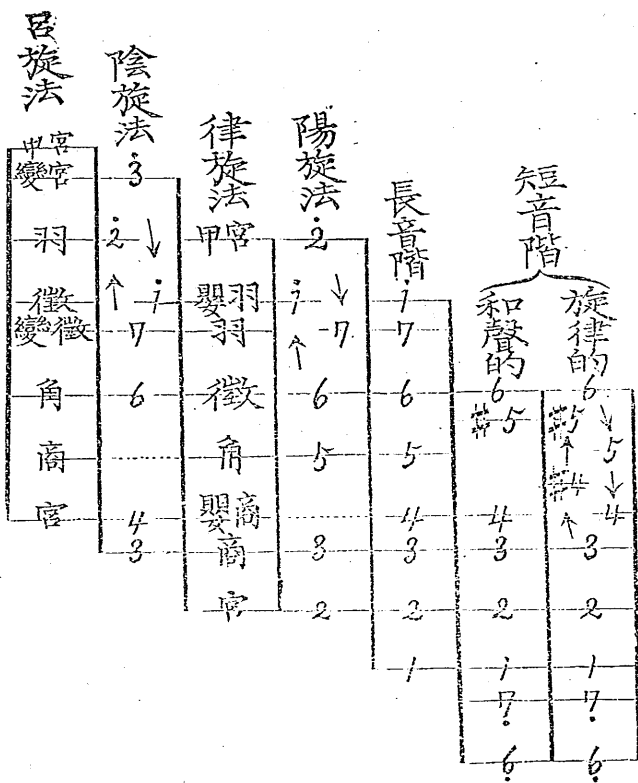 呂旋法
甲宮
變宮
羽
徵
變徵
角
商
宮
陰旋法
3̇
2̇ ↓
↑ 1̇
7
6
4
3
律旋法
甲宮
嬰羽
羽
徵
角
嬰商
商
宮
陽旋法
2̇
1̇ ↓
↑ 7
6
5
3
2
長音階
1̇
7
6
5
4
3
2
1
短音階
和聲的
6
#5
4
3
2
1
7̣
6̣
旋律的
6
#5 ↓
↑ 5
#4 ↓
↑ 4
3
2
1
7̣
6̣